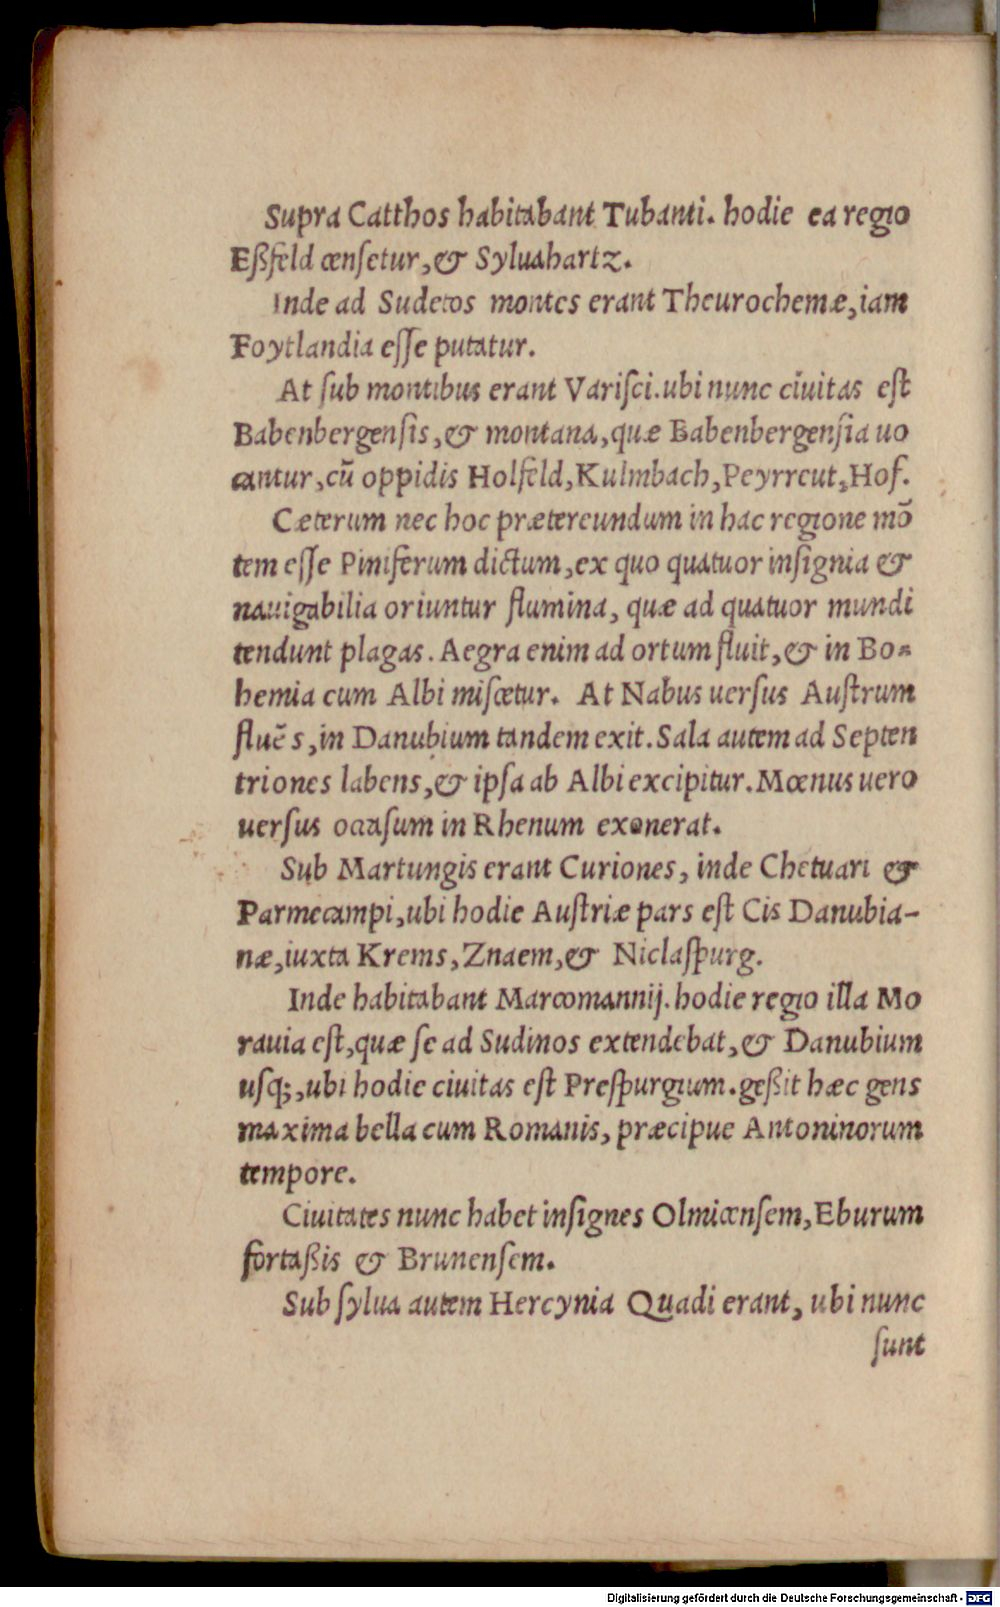 Supra Catthos habitabant Tubanti. hodie ea regio
Eßfeld censetur, & Syluahartz.
Inde ad Sudetos montes erant Theurochemæ, iam
Foytlandia eſſe putatur.
At ſub montibus erant Variſci. ubi nunc ciuitas eſt
Babenbergenſis, & montana, quæ Babenbergenſia uo
cantur, cū oppidis Holfeld, Kulmbach, Peyrreut, Hof.
Cæterum nec hoc prætereundum in hac regione mō
tem eſſe Piniferum dictum, ex quo quatuor inſignia &
nauigabilia oriuntur flumina, quæ ad quatuor mundi
tendunt plagas. Aegra enim ad ortum fluit, & in Bo-
hemia cum Albi miſcetur. At Nabus uerſus Auſtrum
fluēs, in Danubium tandem exit. Sala autem ad Septen
triones labens, & ipſa ab Albi excipitur. Mœnus uero
uerſus occaſum in Rhenum exonerat.
Sub Martungis erant Curiones, inde Chetuari &
Parmecampi, ubi hodie Auſtriæ pars eſt Cis Danubia-
næ, iuxta Krems, Znaem, & Niclaſpurg.
Inde habitabant Marcomannij. hodie regio illa Mo
rauia eſt, quæ ſe ad Sudinos extendebat, & Danubium
uſq;, ubi hodie ciuitas eſt Preſpurgium. geßit hæc gens
maxima bella cum Romanis, præcipue Antoninorum
tempore.
Ciuitates nunc habet inſignes Olmicenſem, Eburum
fortaßis & Brunenſem.
Sub ſylua autem Hercynia Quadi erant, ubi nunc
ſunt
Digitalisierung gefördert durch die Deutsche Forschungsgemeinschaft - DFG